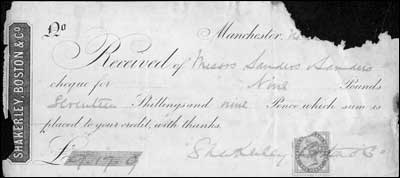 SHAKERLEY, BOSTON & Co.
No
Manchester,
Received of Messrs Sanders & Sanders
cheque for Nine Pounds
Seventeen Shillings and nine Pence which sum is
placed to your credit, with thanks.
£ 9.17.9
"Shakerley Boston & Co"